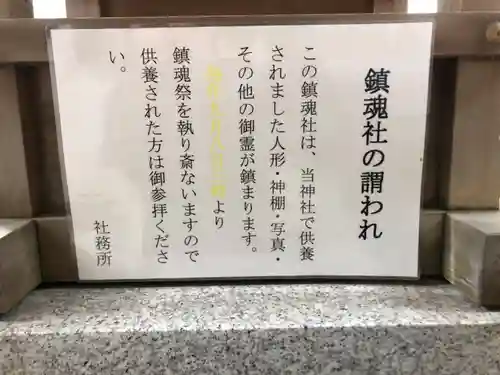 鎮魂社の謂われ
この鎮魂社は、当神社で供養
されました人形・神棚・写真・
その他の御霊が鎮まります。
より
鎮魂祭を執り斎ないますので
供養された方は御参拝くださ
い。
社務所